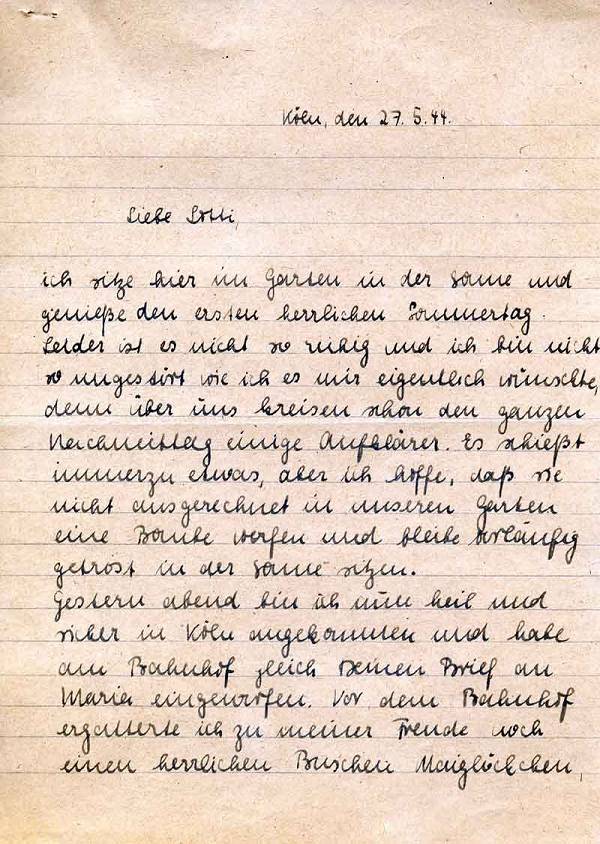 Köln, den 27.5.44.
Liebe Lotti,
ich sitze hier im Garten in der Sonne und
genieße den ersten herrlichen Sommertag.
Leider ist es nicht so ruhig und ich bin nicht
so ungestört wie ich es mir eigentlich wünschte,
denn über uns kreisen schon den ganzen
Nachmittag einige Aufklärer. Es schießt
immerzu etwas, aber ich hoffe, daß sie
nicht ausgerechnet in unseren Garten
eine Bombe werfen und bleibe vorläufig
getrost in der Sonne sitzen.
Gestern abend bin ich nun heil und
sicher in Köln angekommen und habe
am Bahnhof gleich Deinen Brief an
Maria eingeworfen. Vor dem Bahnhof
ergatterte ich zu meiner Freude noch
einen herrlichen Buschen Maiglöckchen,